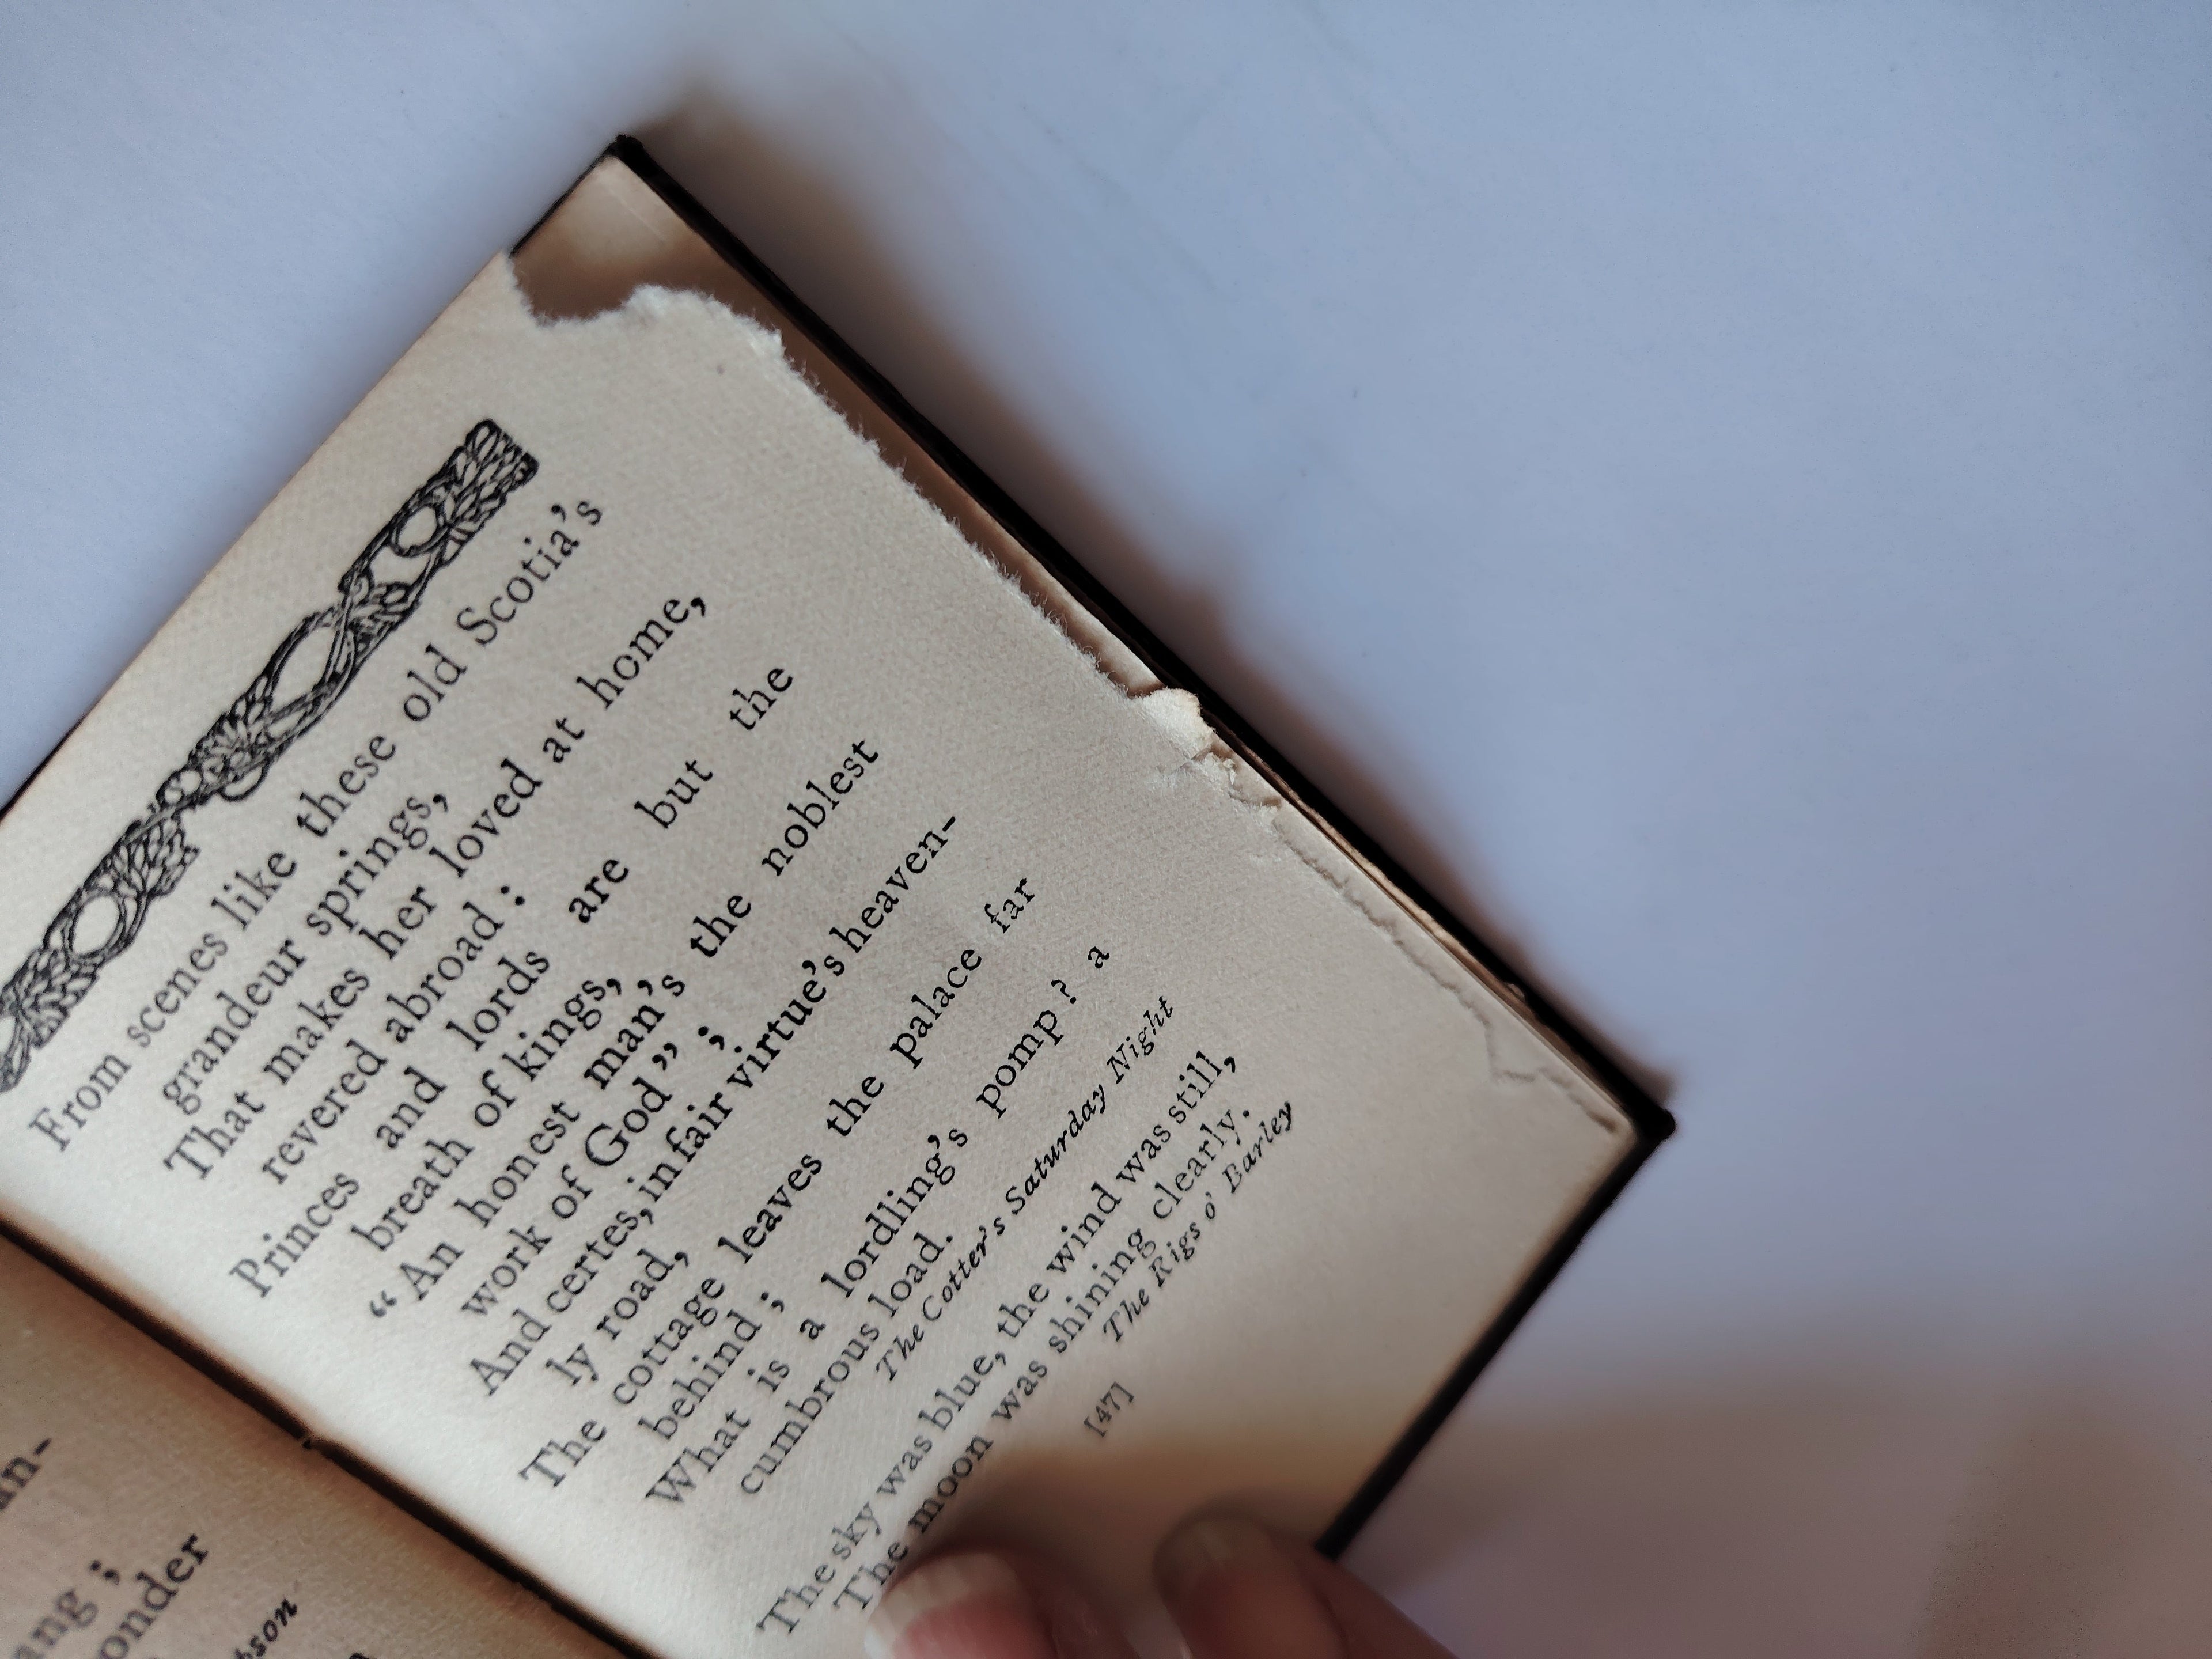 From scenes like these old Scotia's
grandeur springs,
That makes her loved at home,
revered abroad :
Princes and lords are but the
breath of kings,
“An honest man's the noblest
work of God” ;
And certes, in fair virtue's heaven-
ly road,
The cottage leaves the palace far
behind ;
What is a lordling's pomp? a
cumbrous load.
The Cotter's Saturday Night
The sky was blue, the wind was still,
The moon was shining clearly.
The Rigs o' Barley
[47]